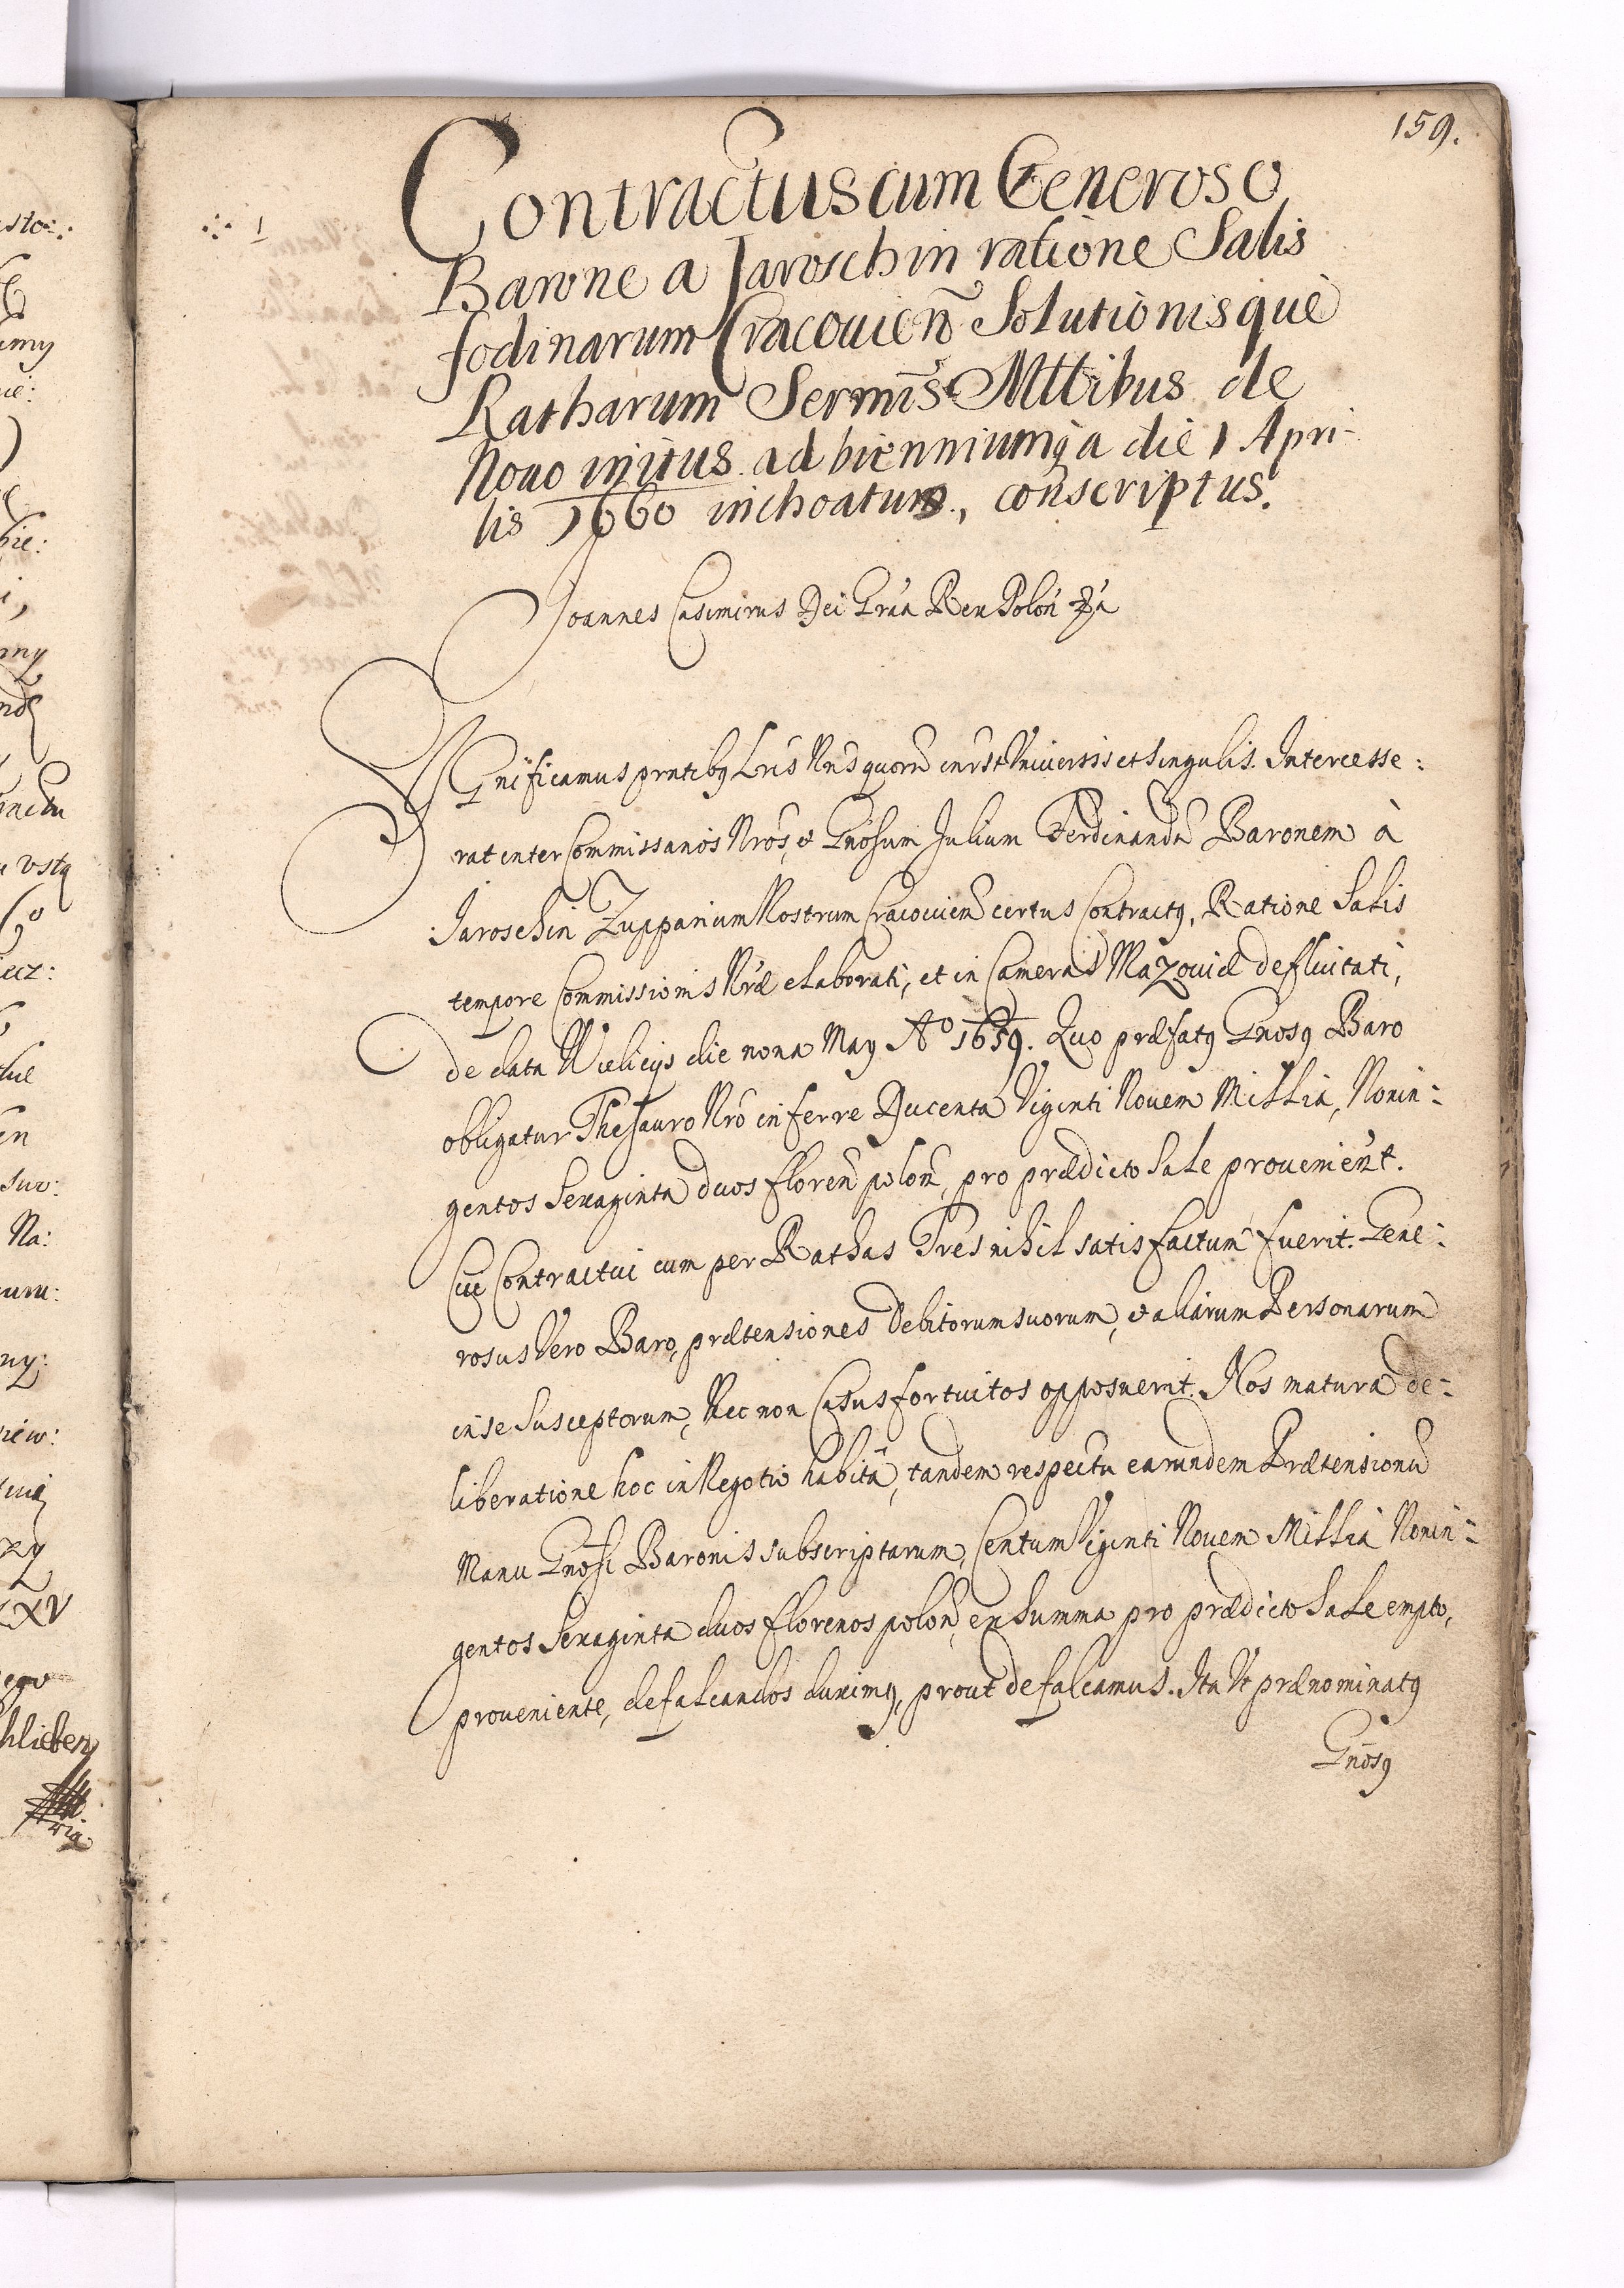 159.
Contractus cum Generoso
Barone a Jaroschin ratione Salis
fodinarum Cracouien̄ Solutionisquè
Ratharum Serm̄is Mttibus de
Nouo initus ad biennium a die 1 Apri-
lis 1660 inchoatum, conscriptus.
Joannes Casimirus Dei Gr̃a Rex Polon̄
Significamus prntibꝫ Lr̃is Nr̃is quorũ inrst Vniuersis et Singulis. Intercesse:
rat inter Commissarios Nr̃os, et Gnõsum Julium Ferdinandũ Baronem à
Jaroschin Zupparium Nostrum Cracouien̄ certus Contractꝯ, Ratione Salis
tempore Commissionis Nr̃æ elaborati, et in Cameras Mazouiæ defluitati,
de data Wielicijs die nona May A° 1659. Quo præfatꝯ Gnosꝯ Baro
obligatur Thesauro Nrõ inferre Ducenta Viginti Nouem Millia, Nonin:
gentos Sexaginta duos floren̄ polon̄, pro prædicto Sale prouenient.
Cui Contractui cum per Rathas Tres nihil satisfactum fuerit. Gene:
rosus Vero Baro, prætensiones debitorum suorum, et aliarum Personarum
in se Susceptorum, Nec non Casus fortuitos opposuerit. Nos matura de:
liberatione hoc in Negotio habitâ, tandem respectu earundem Prætensionũ
Manu Gnõsi Baronis subscriptarum, Centum Viginti Nouem Millia Nonin:
gentos Sexaginta duos florenos polon̄, ex Summa pro prædicto Sale empto,
proueniente, defalcandos duximꝯ, prout defalcamus. Ita Vt prænominatꝯ
Gnõsꝯ